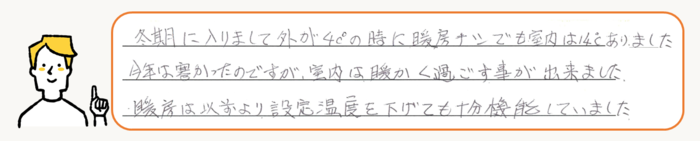 冬期に入りまして外が4℃の時に暖房ナシでも室内は14℃ありました
今年は寒かったのですが、室内は暖かく過ごす事が出来ました
暖房は以前より設定温度を下げても十分機能していました